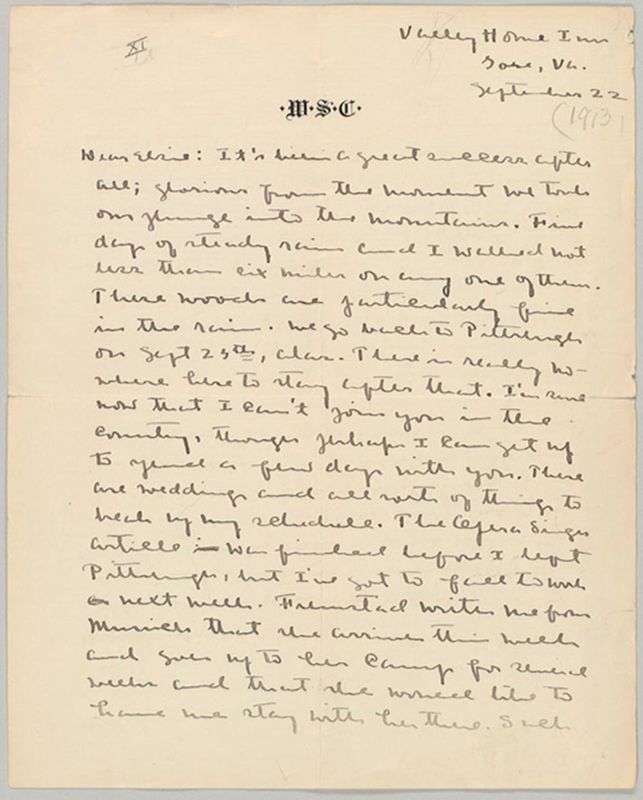 XI
Valley Home Inn
Gore, Va.
September 22
(1913)
·W·S·C·
Dear Elsie: It's been a great success after
all; glorious from the moment we took
our plunge into the mountains. Five
days of steady rain and I walked not
less than six miles on any one of them.
These woods are particularly fine
in the rain. We go back to Pittsburgh
on Sept 25th, alas. There is really no-
where here to stay after that. I'm sure
now that I can't join you in the
country, though perhaps I can get up
to spend a few days with you. There
are weddings and all sorts of things to
break up my schedule. The Opera Singer
article was finished before I left
Pittsburgh, but I've got to fall to work
next week. Fremstad writes me from
Munich that she arrives this week
and goes up to her camp for several
weeks and that she would like to
have me stay with her there. Such